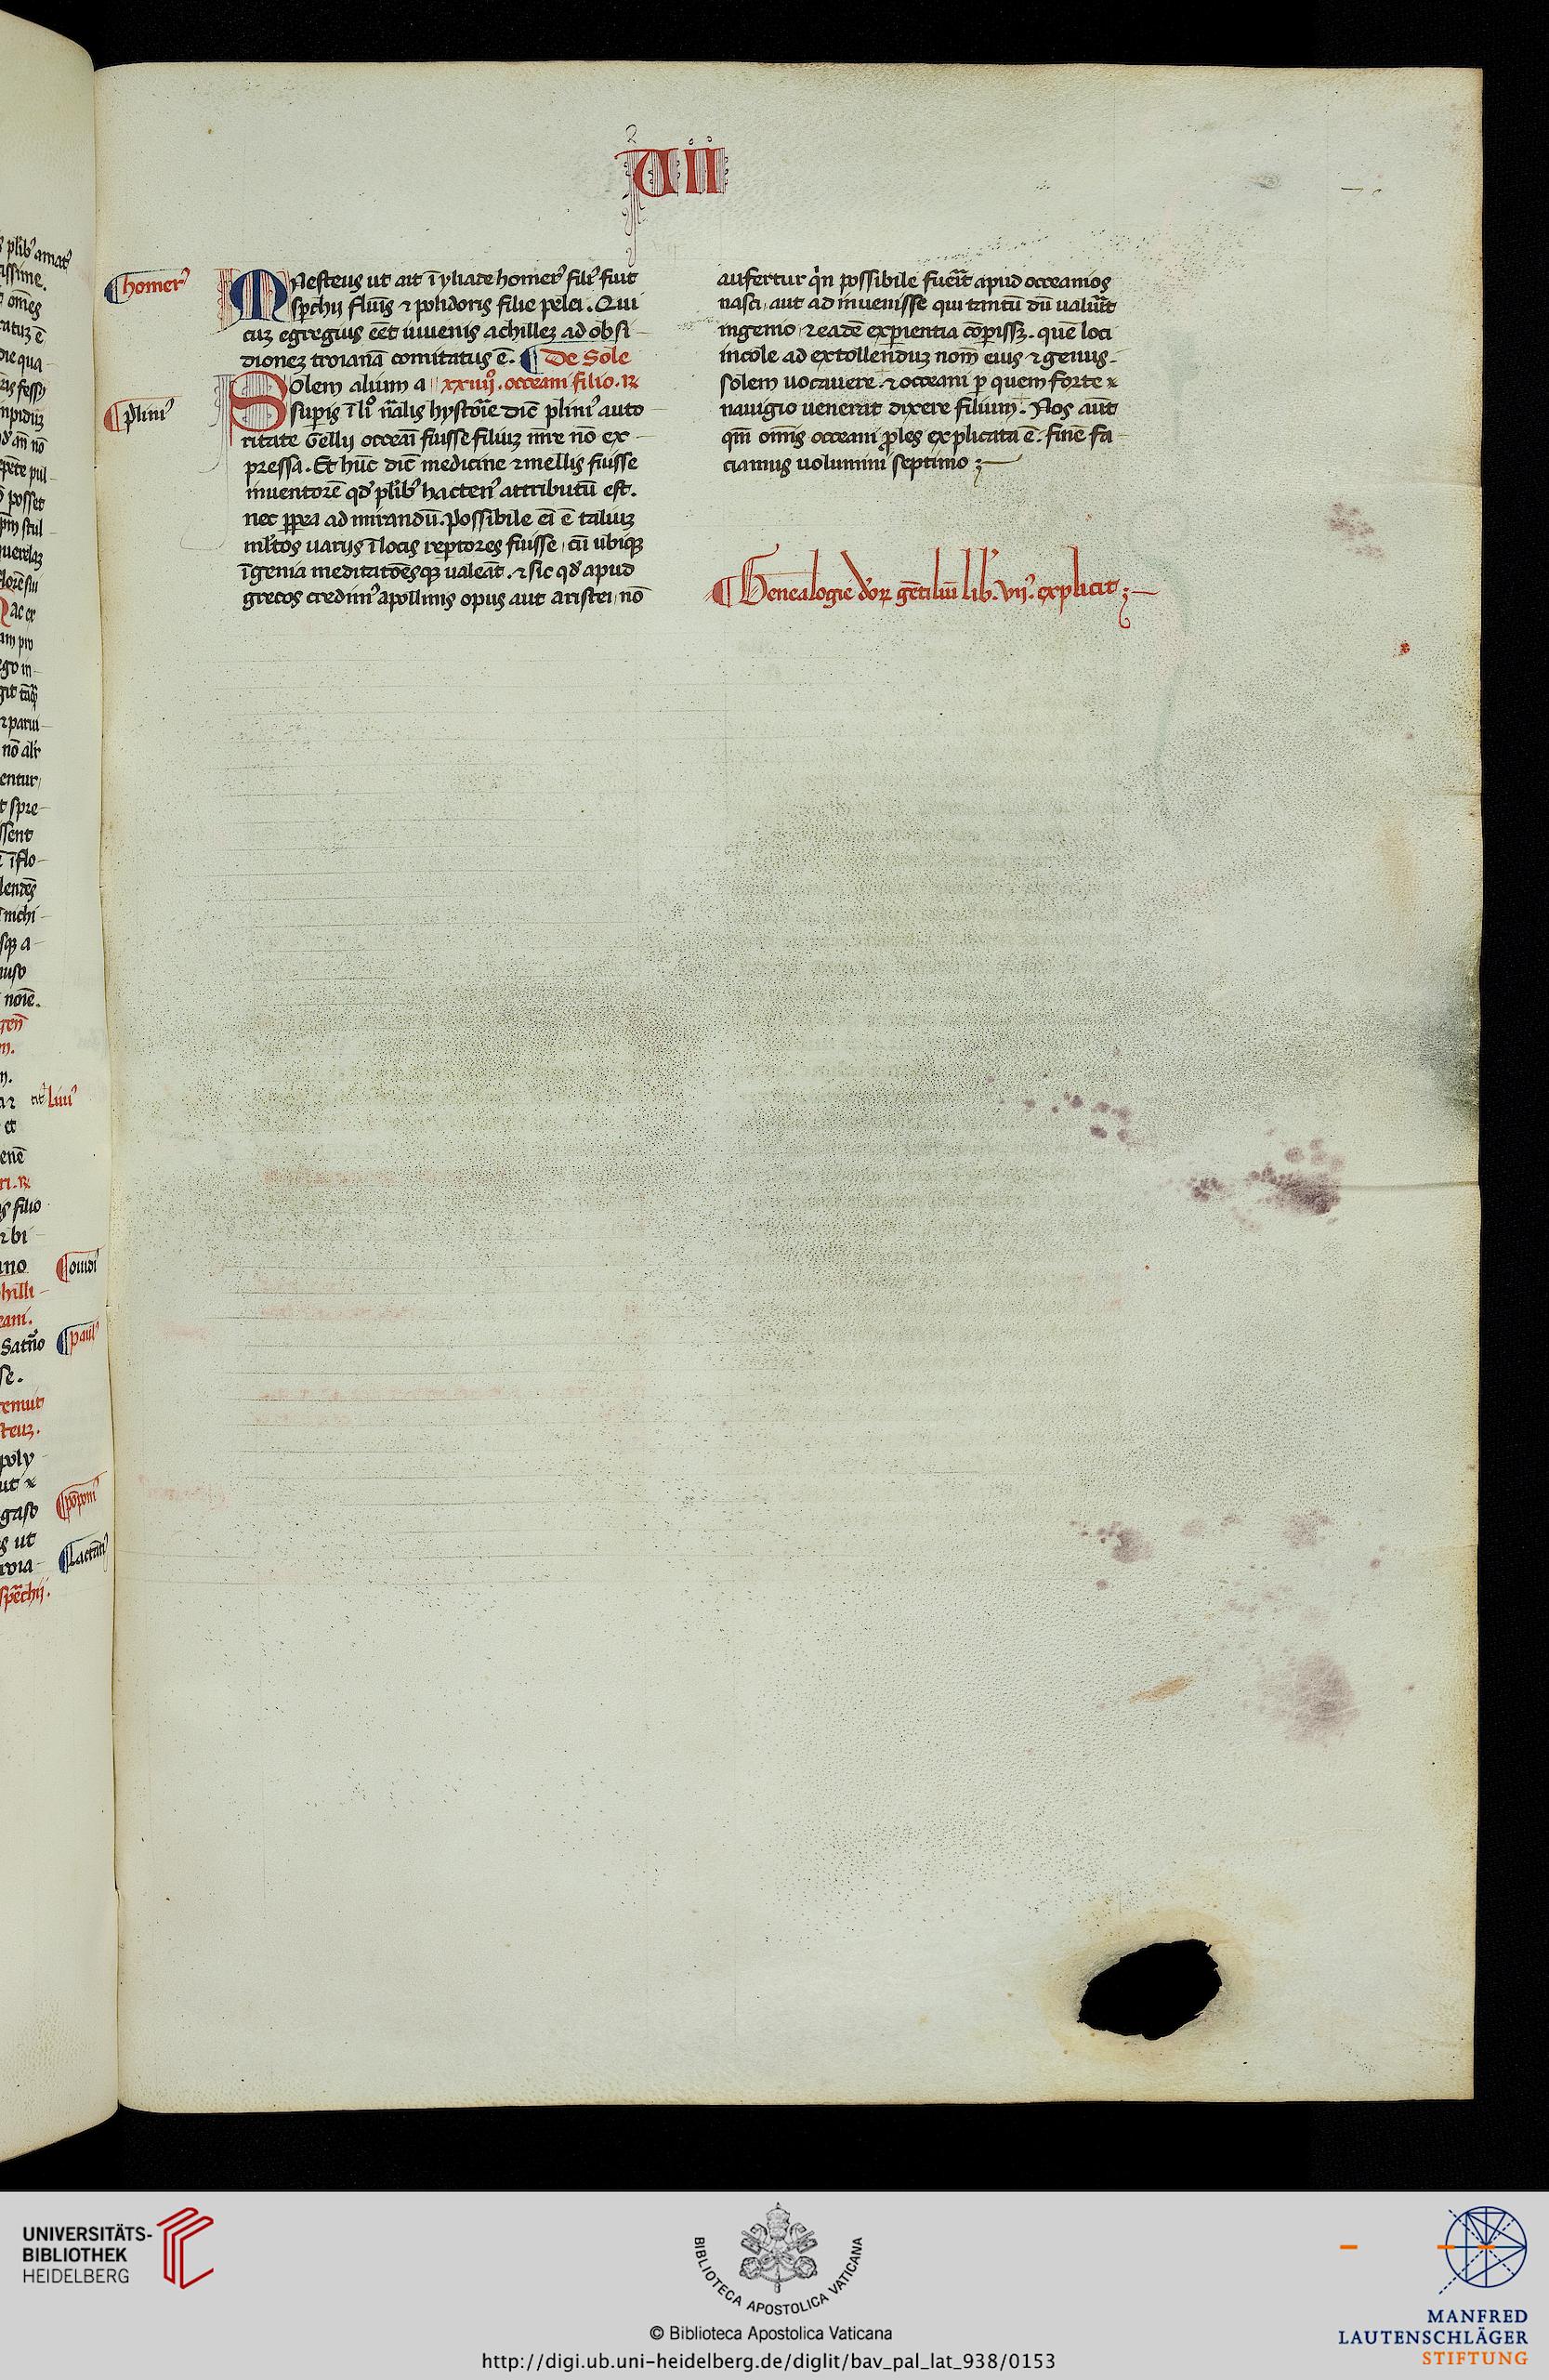 VII
homer᾿
Mnesteus ut ait ī yliade homer᾿ fili᾿ fuit
sp̄chij fluīs ⁊ polidoris filie pelei. Qui
cuz egregius eēt iuuenis achillez ad obsi-
dionez troianā comitatus ē. ¶ De Sole
Solem alium a xxiiijº. occeani filio. R
plini᾿
superis ī liº nālis hystoīe dic̄ plini᾿ auto
ritate Gellij occeāi fuisse filiuz m̄re nō ex-
pressa. Et hūc dic̄ medicine ⁊ mellis fuisse
inuentorē qđ plib᾿ hacten᾿ attributū est.
nec ꝑꝑea ad mirandū. Possibile ei ē taliuz
ml̄tos uarijs ī locis reptores fuisse, cū ubiqꝫ
īgenia meditatōesqꝫ ualeāt. ⁊ sic qđ apud
grecos credim᾿ apollinis opus aut aristei, nō
aufertur qin possibile fuerīt apud occeanios
nasci, aut ad inuenisse qui tantū dū ualuīt
ingenio, ⁊ eadē exꝑientia cōꝑissꝫ. quē loci
incole ad extollenduz nom̄ eius ⁊ genus-
solem uocauere. ⁊ occeani ꝑ quem forte
nauigio uenerat dixere filium. Nos aūt
qm̄ omīs occeani ꝓles explicata ē. finē fa-
ciamus uolumini septimo ;
¶ Genealogie deoꝝ gētiliū lib. vijº. explicit ;
UNIVERSITÄTS-
BIBLIOTHEK
HEIDELBERG
BIBLIOTECA APOSTOLICA VATICANA
© Biblioteca Apostolica Vaticana
http://digi.ub.uni-heidelberg.de/diglit/bav_pal_lat_938/0153
MANFRED
LAUTENSCHLÄGER
STIFTUNG